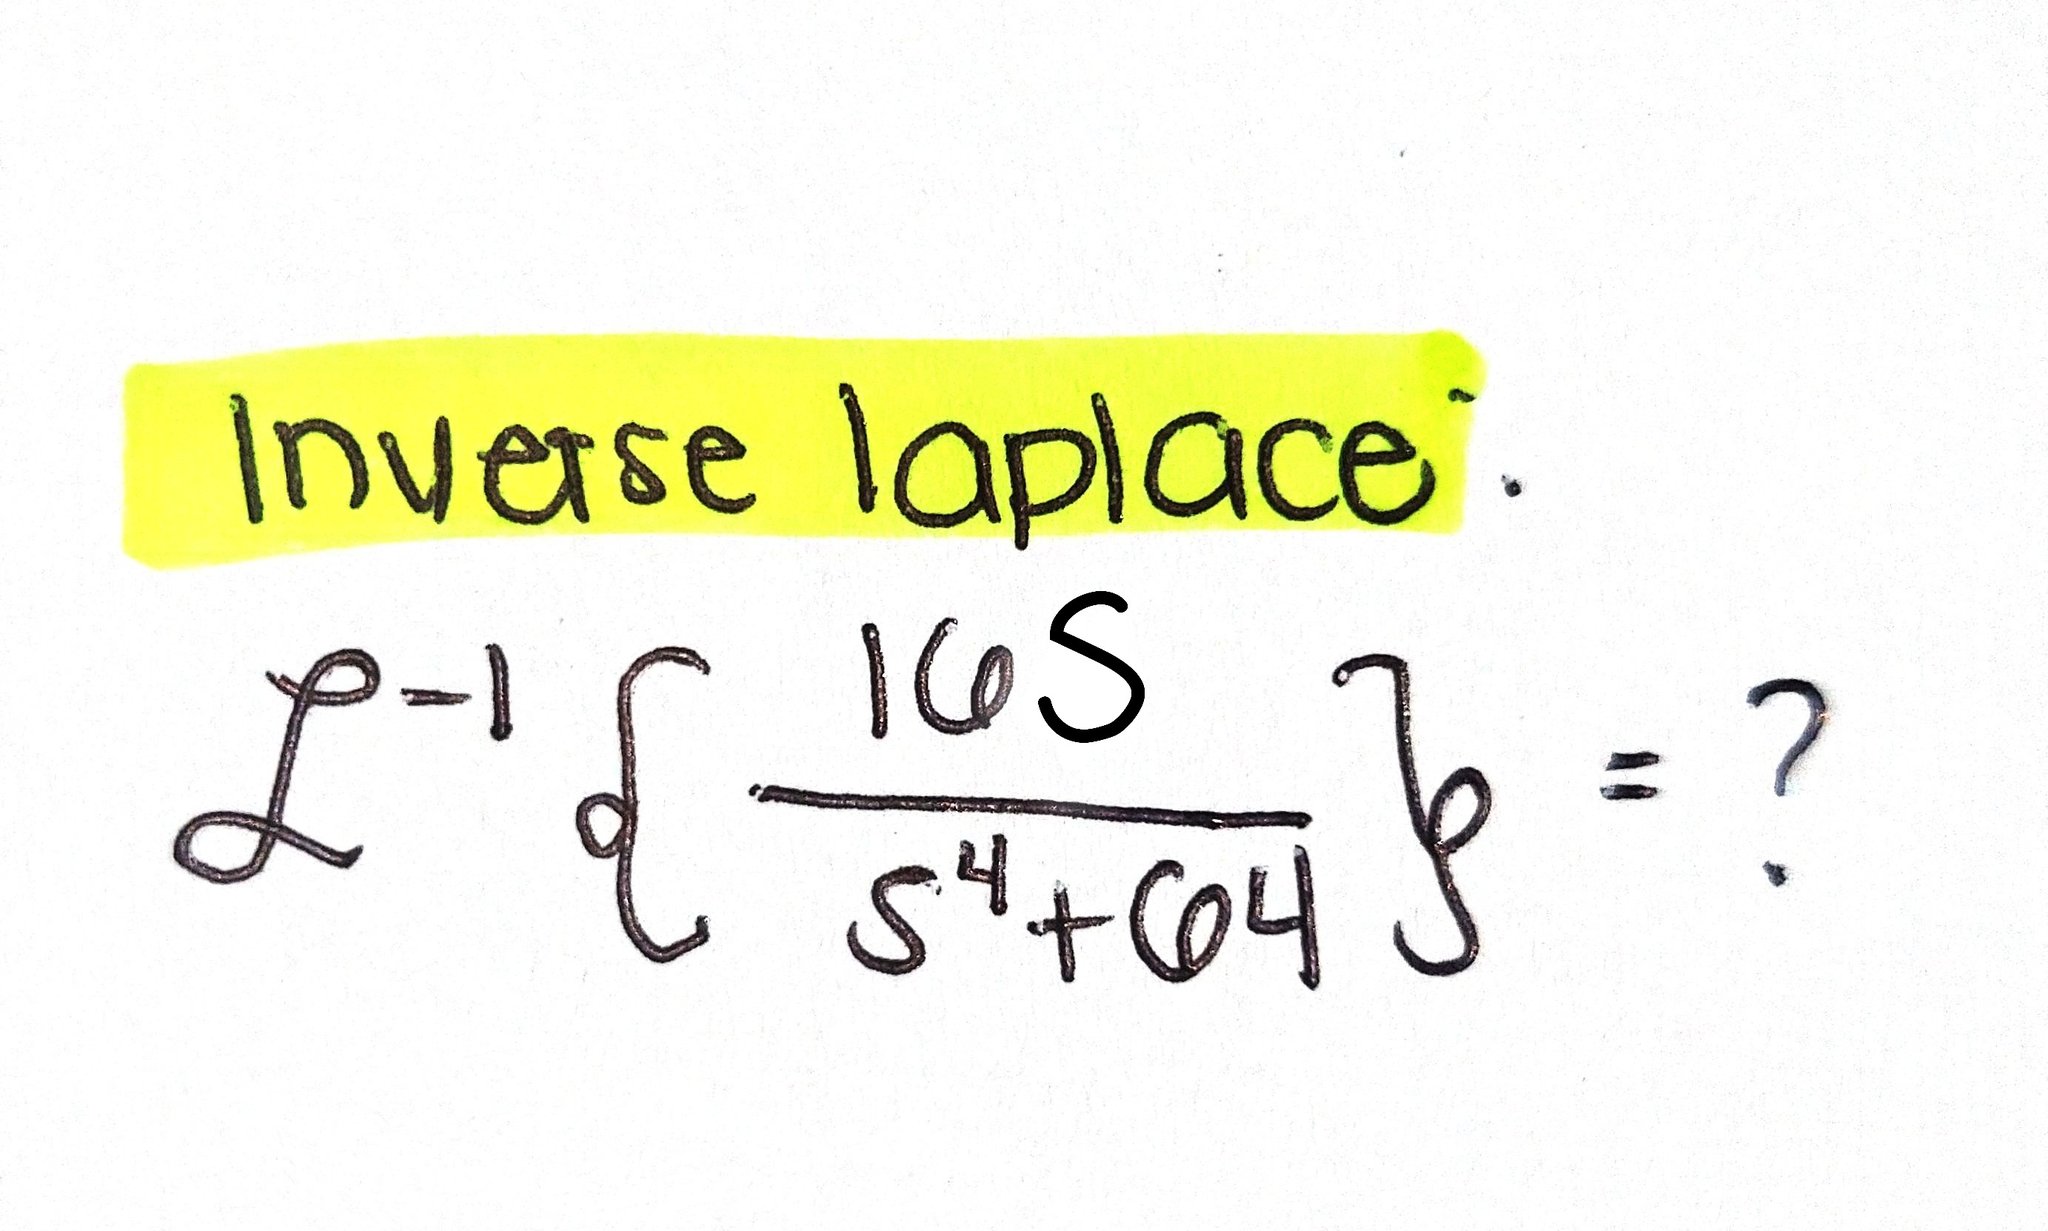 Inverse laplace.
ℒ⁻¹ { 16S / s⁴+64 } = ?